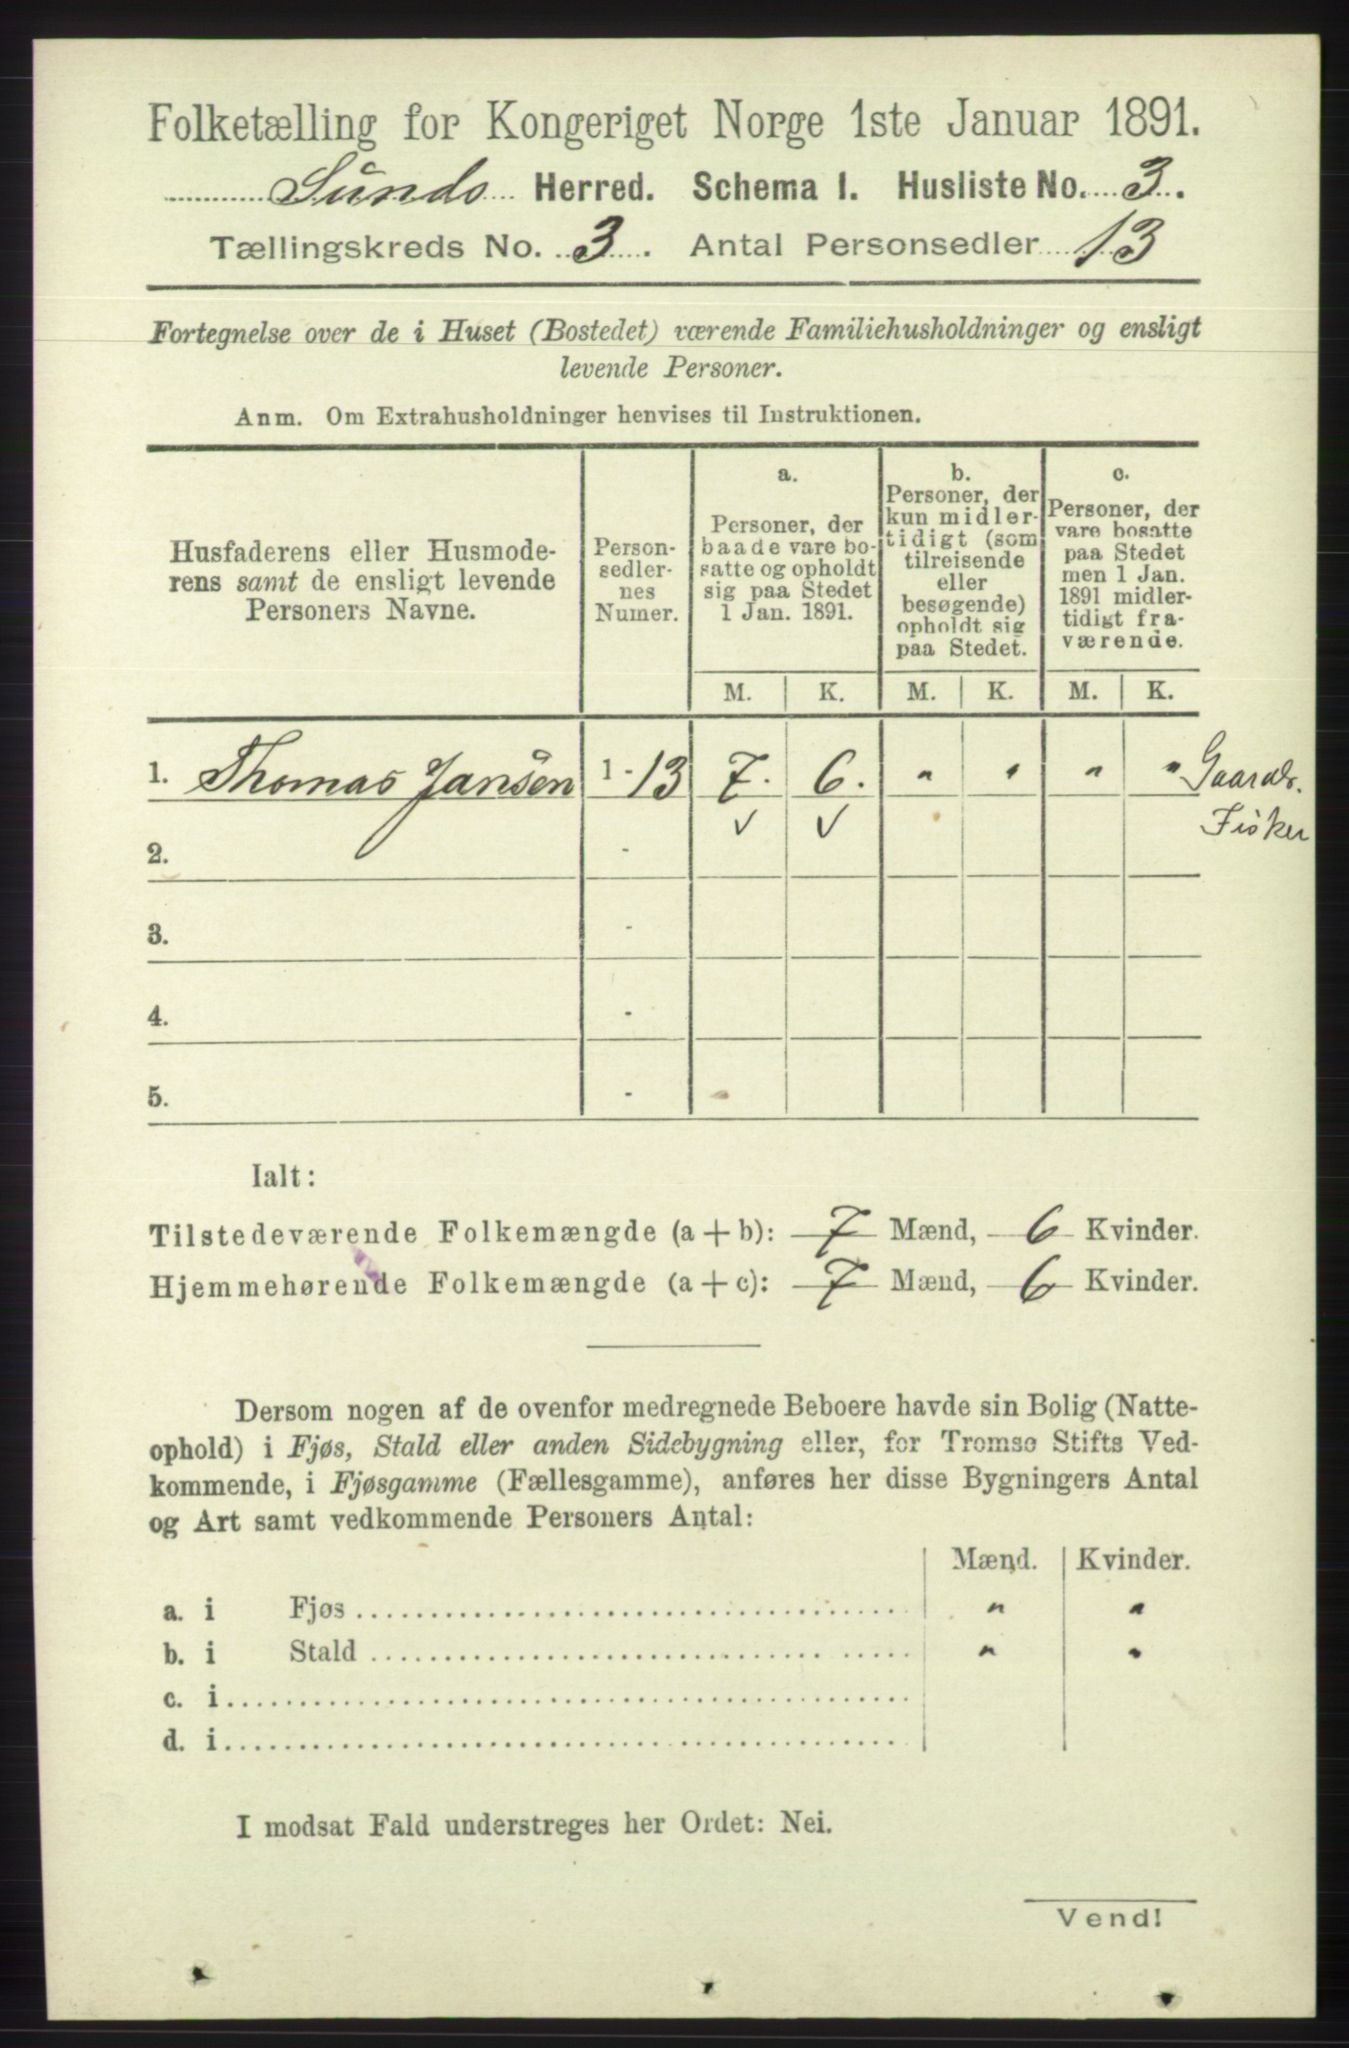 Folketælling for Kongeriget Norge 1ste Januar 1891.
Sunds Herred. Schema I. Husliste No. 3.
Tællingskreds No. 3. Antal Personsedler 13
Fortegnelse over de i Huset (Bostedet) værende Familiehusholdninger og ensligt
levende Personer.
Anm. Om Extrahusholdninger henvises til Instruktionen.
Husfaderens eller Husmode-
rens samt de ensligt levende
Personers Navne.
Person-
sedler-
nes
Numer.
a.
Personer, der
baade vare bo-
satte og opholdt
sig paa Stedet
1 Jan. 1891.
b.
Personer, der
kun midler-
tidigt (som
tilreisende
eller
besøgende)
opholdt sig
paa Stedet.
c.
Personer, der
vare bosatte
paa Stedet
men 1 Jan.
1891 midler-
tidigt fra-
værende.
M. K. M. K. M. K.
1. Thomas Jansen 1-13 7. 6. " " " " Gaardb.
Fisker
2. - v v
3. -
4. -
5. -
Ialt:
Tilstedeværende Folkemængde (a + b): 7 Mænd, 6 Kvinder.
Hjemmehørende Folkemængde (a + c): 7 Mænd, 6 Kvinder.
Dersom nogen af de ovenfor medregnede Beboere havde sin Bolig (Natte-
ophold) i Fjøs, Stald eller anden Sidebygning eller, for Tromsø Stifts Ved-
kommende, i Fjøsgamme (Fællesgamme), anføres her disse Bygningers Antal
og Art samt vedkommende Personers Antal:
Mænd. Kvinder.
a. i Fjøs " "
b. i Stald " "
c. i
d. i
I modsat Fald understreges her Ordet: Nei.
Vend!